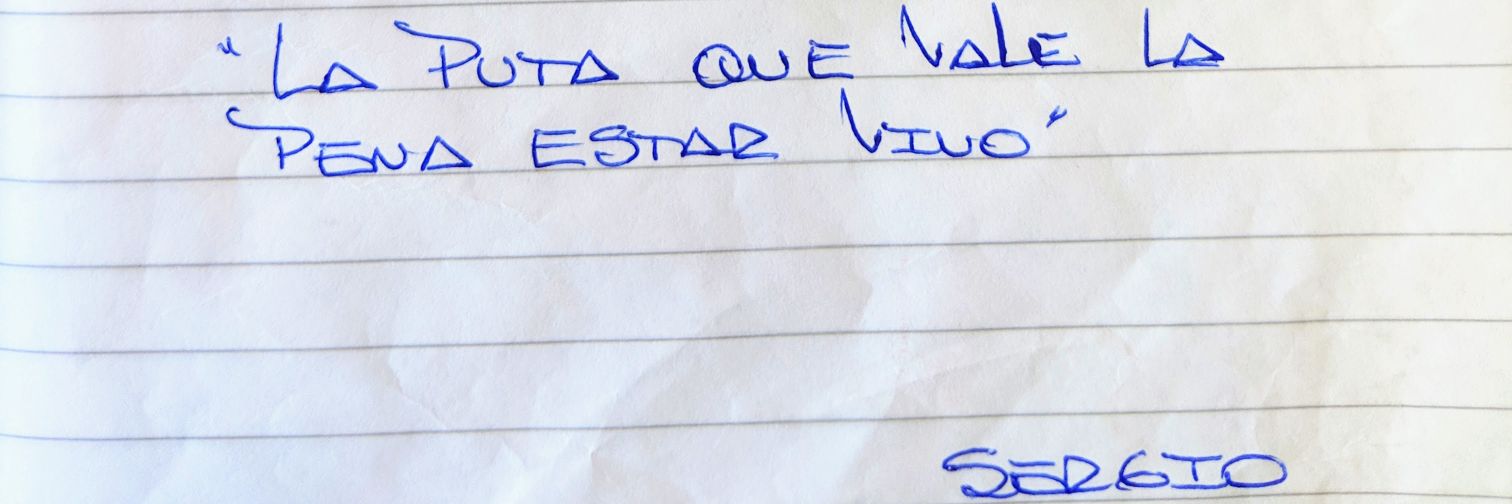 "LA PUTA QUE VALE LA
PENA ESTAR VIVO"
SERGIO